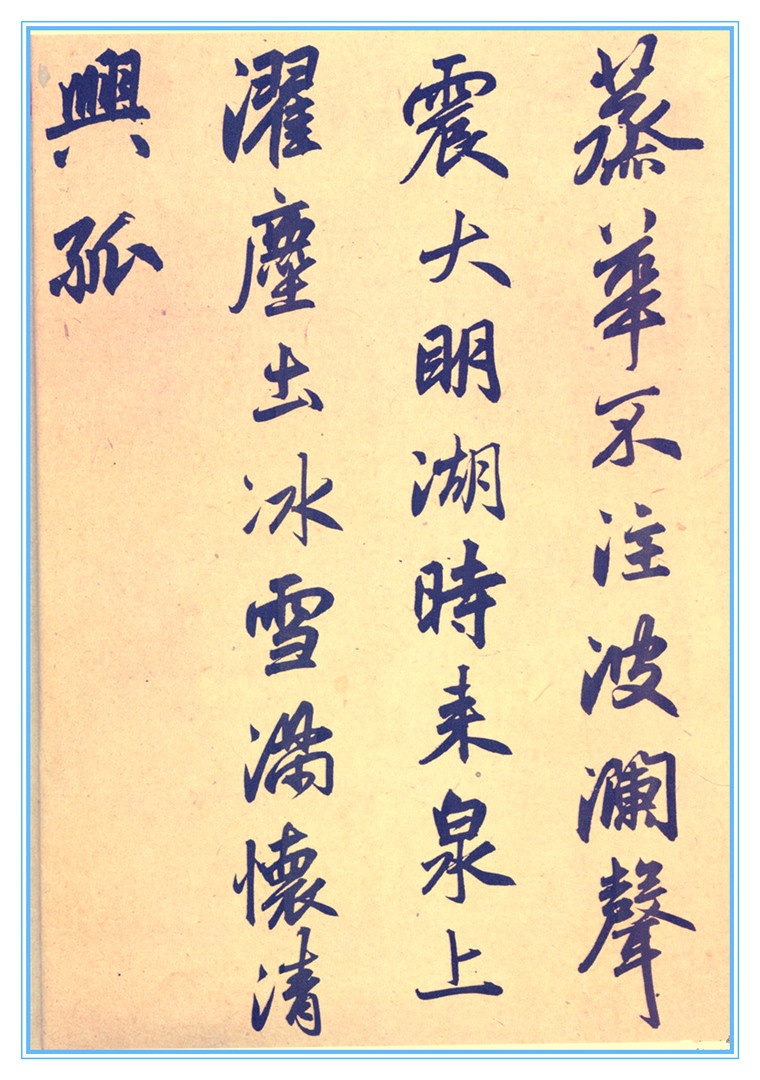 蒸華不注波瀾聲
震大明湖時来泉上
濯塵土冰雪滿懷清
興孤